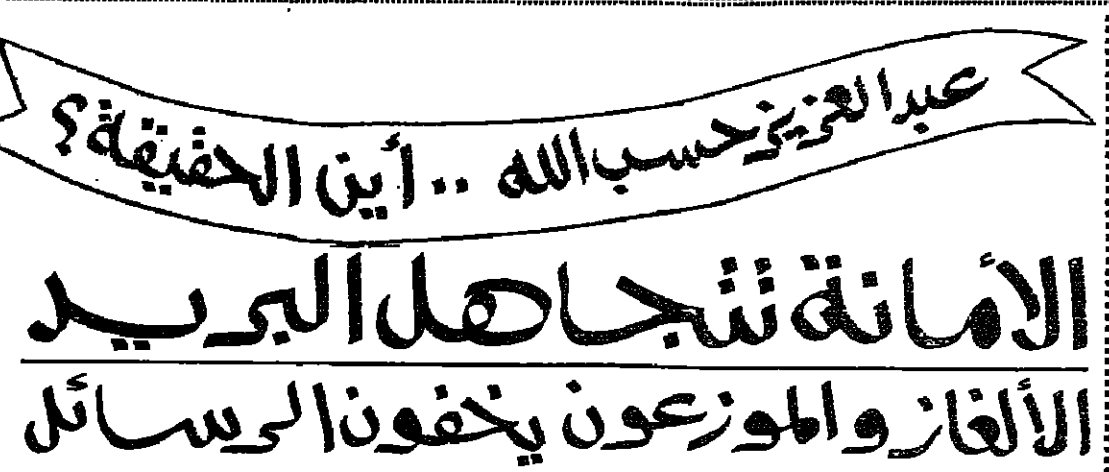 عبدالعزيز حسب الله .. أين الحقيقة؟
الأمانة تتجاهل البريد
الألغاز والموزعون يخفون الرسائل